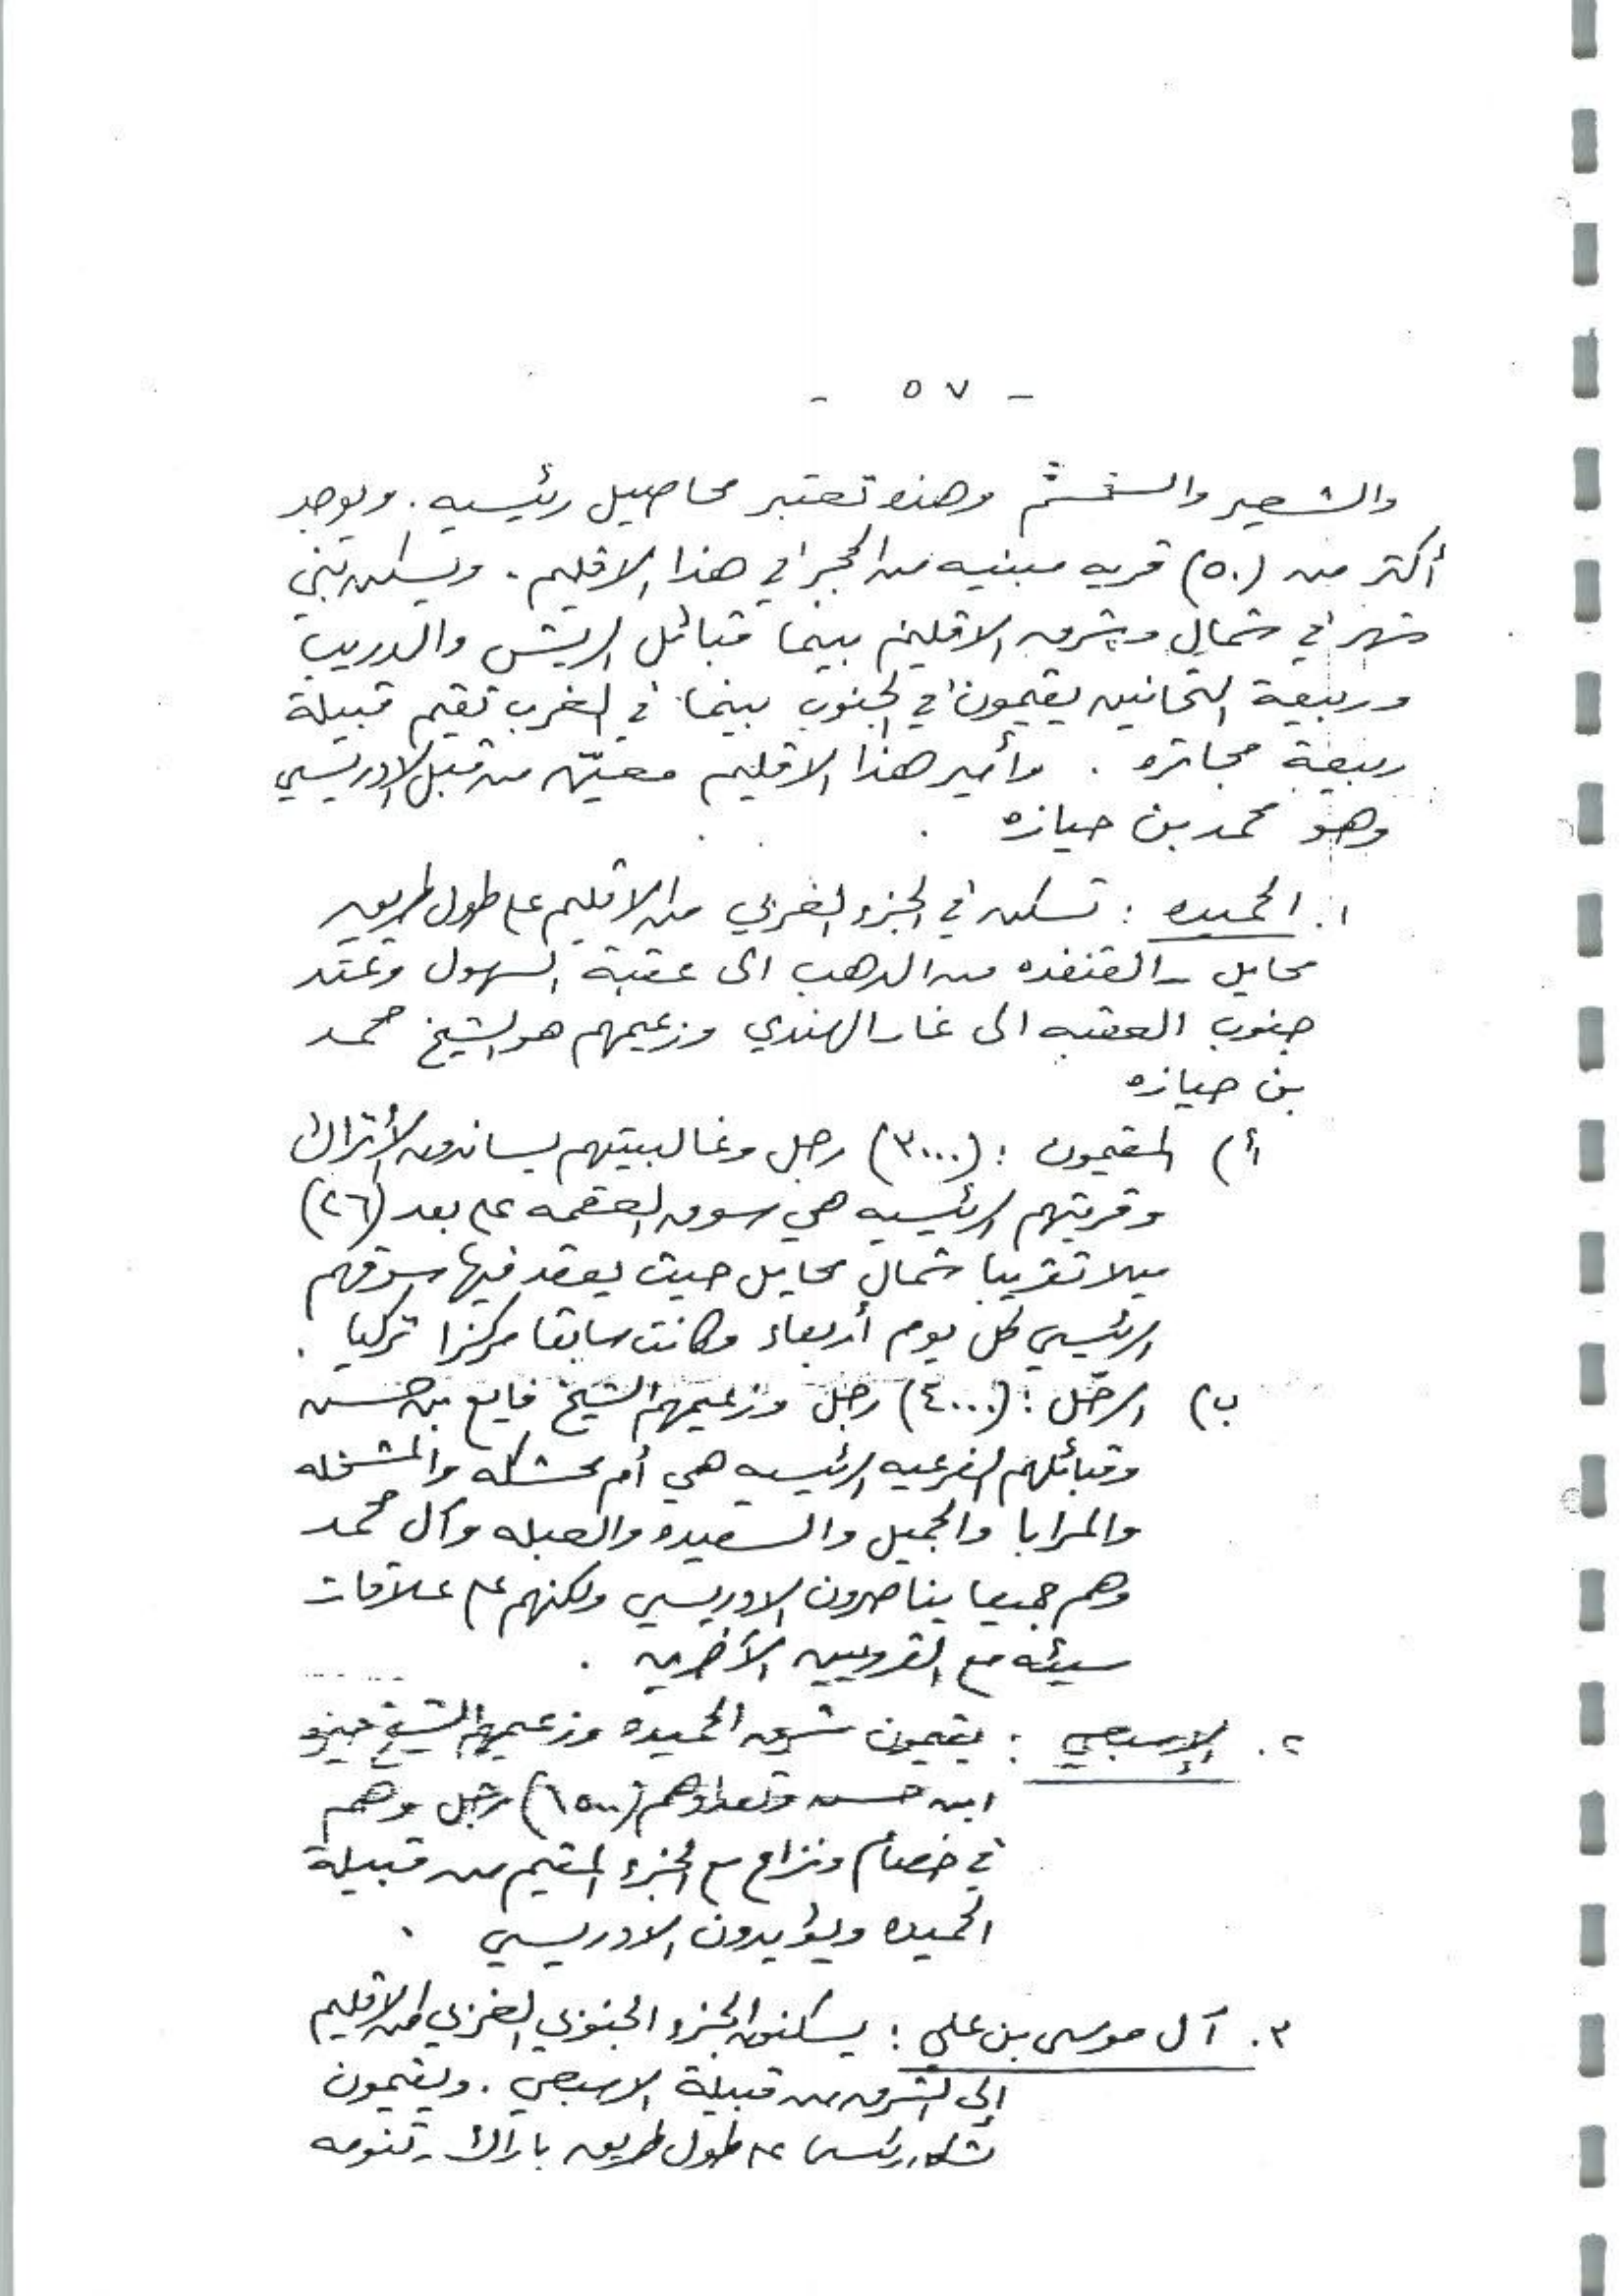 - ٥٧ -
والشعير والسخشم وهذه تعتبر محاصيل رئيسيه. ويوجد
أكثر من (٥٠) قريه مبنيه من الحجر في هذا الاقليم. ويسكن بني
شهر في شمال وشرق الاقليم بينما قبائل الريش والدريب
وربيعة التحانين يقيمون في الجنوب بينما في الغرب تقيم قبيلة
ربيعة مجاتره. وأمير هذا الاقليم معيّن من قبل الادريسي
وهو محمد بن حيازه
١. الحميده : تسكن في الجزء الغربي من الاقليم على طول طريق
محايل - القنفذه من الدهب الى عقبة السهول وتمتد
جنوب العقبه الى غار الهندي وزعيمهم هو الشيخ محمد
بن حيازه
أ) المقيمون : (٣٠٠٠) رجل وغالبيتهم يساندون الأتراك
وقريتهم الرئيسيه هي سوق العقمه على بعد (٢٦)
ميلا تقريبا شمال محايل حيث يعقد فيها سوقهم
الرئيسي كل يوم أربعاء وكانت سابقا مركزا تركيا .
ب) الرحّل : (٤٠٠٠) رجل وزعيمهم الشيخ فايع بن حسن
وقبائلهم الفرعيه الرئيسيه هي أم محشكه والمشخله
والمرايا والجميل والسعيده والعبله وآل محمد
وهم جميعا يناصرون الادريسي ولكنهم على علاقات
سيئه مع القرويين الآخرين .
٢. الإسبعي : يقيمون شرق الحميده وزعيمهم الشيخ
ابن حسن وتعدادهم (١٥٠٠) رجل وهم
في خصام ونزاع مع الجزء المقيم من قبيلة
الحميده ويؤيدون الادريسي .
٣. آل موسى بن علي : يسكنون الجزء الجنوبي الغربي من الاقليم
إلى الشرق من قبيلة الاسبعي. ويقيمون
بشكل رئيسي على طول طريق باراك - تنومه